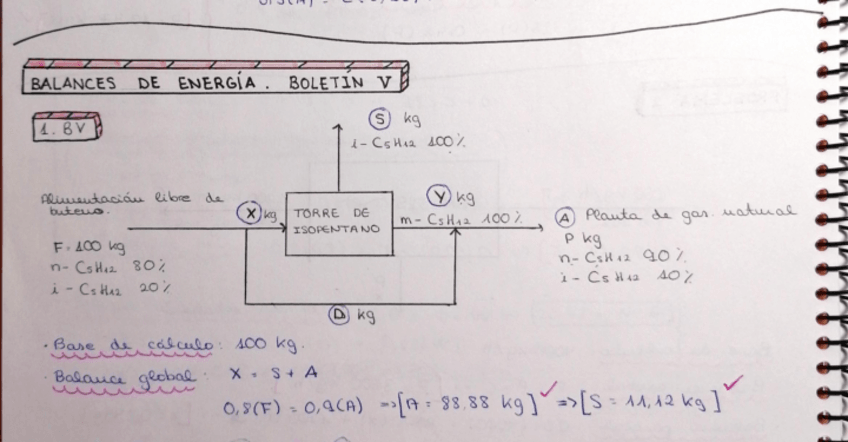 BALANCES DE ENERGÍA. BOLETÍN V
1. BV
S kg
i - C5H12 100%
Alimentación libre de
buteno.
X kg
TORRE DE
ISOPENTANO
Y kg
m - C5H12 100%
A Planta de gas. natural
P kg
n - C5H12 90%
i - C5H12 10%
F = 100 kg
n - C5H12 80%
i - C5H12 20%
D kg
· Base de cálculo: 100 kg.
· Balance global: X = S + A
0,8(F) = 0,9(A) => [A = 88,88 kg] ✓ => [S = 11,12 kg] ✓